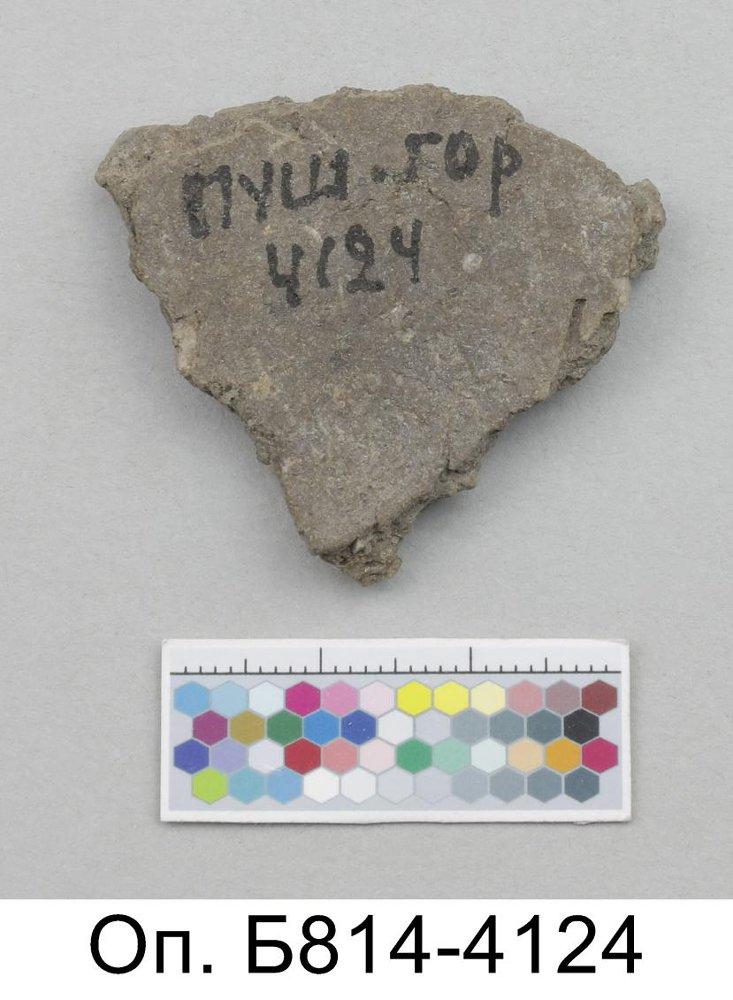 ПУШ. ГОР
4124
Оп. Б814-4124